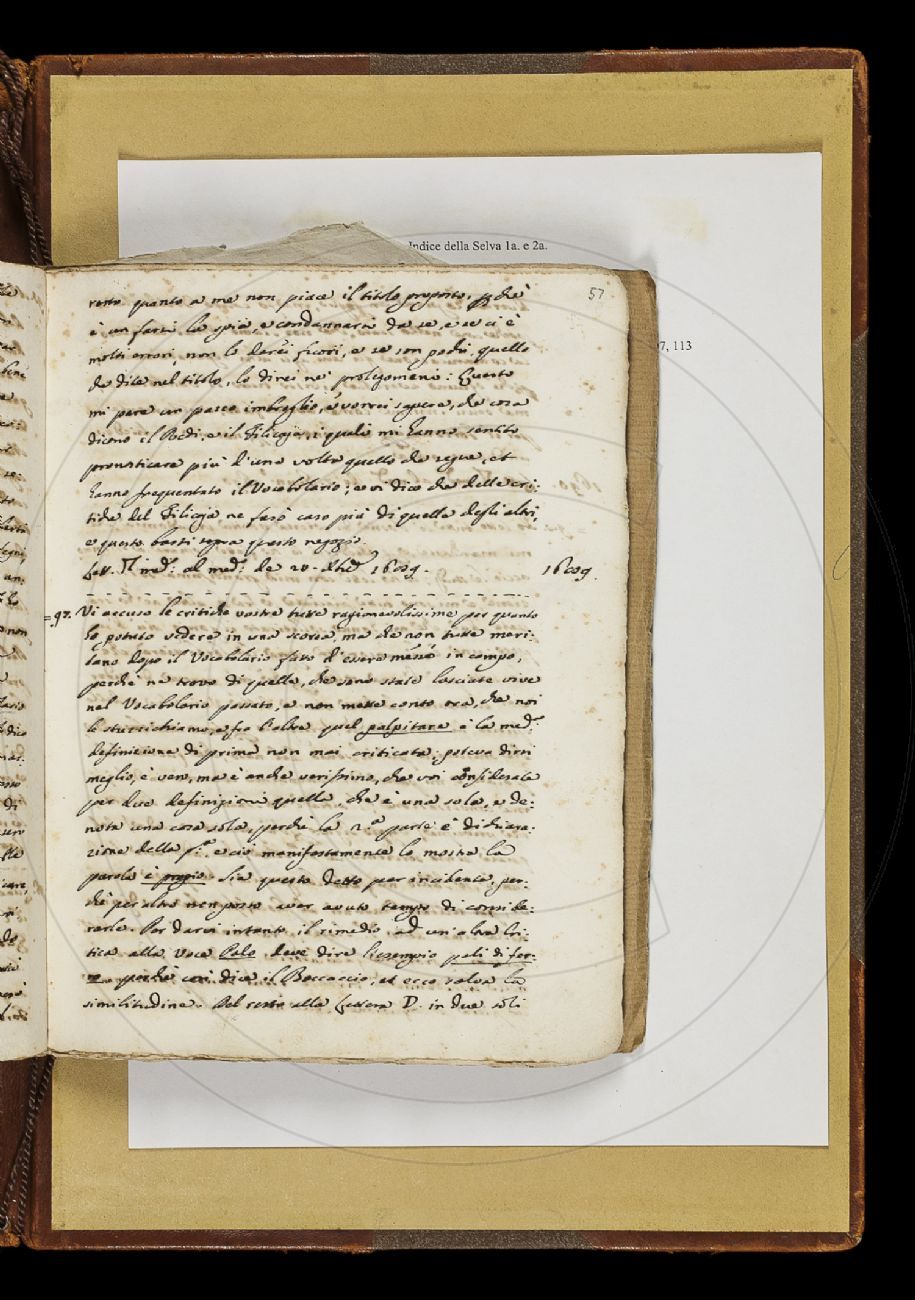 Indice della Selva 1a. e 2a.
57
7, 113
resto quanto a me non piace il titolo proposto, p̱che
è un farsi la spia, e condannarsi da se, e se ci è
molti errori, non lo darei fuori, e se son pochi, quello
che dite nel titolo, lo direi ne' prolegomeni: Questo
mi pare un pasco imbroglio, e vorrei sapere, che cosa
dicono il Redi, e il Filicaja, i quali mi hanno sentito
pronosticare più d'una volta quello che segue, et
hanno frequentato il Vocabolario; e vi dico che delle cri:
tiche del Filicaja ne farò caso più di quelle degli altri,
e questo basti sopra questo negozio.
al med.º de
= 97. Vi accuso le critiche vostre tutte ragionevolissime per quanto
ho potuto vedere in una scorsa, ma che non tutte meri:
tano dopo il Vocabolario fatto d'essere messe in campo,
perchè ne trovo di quelle, che sono state lasciate vive
nel Vocabolario passato, e non mette conto ora, che noi
le stuzzichiamo, e fra l'altre quel palpitare è la med.ª
definizione di prima non mai criticata; poteva dirsi
meglio, è vero, ma è anche verissimo, che voi considerate
per due definizioni quella, che è una sola, e de:
nota una cosa sola, perchè la 2.ª parte è dichiara:
zione della p.ª, e ciò manifestamente lo mostra la
parola è proprio. Sia questo detto per incidenza, per:
chè per altro non posso aver avuto tempo di conside:
rarle. Per darvi intanto il rimedio ad un'altra Cri:
tica alla voce Palo, deve dire l'esempio pali di fer:
ro perchè così dice il Boccaccio, et ecco salva la
similitudine. Del resto alla lettera P. in due soli